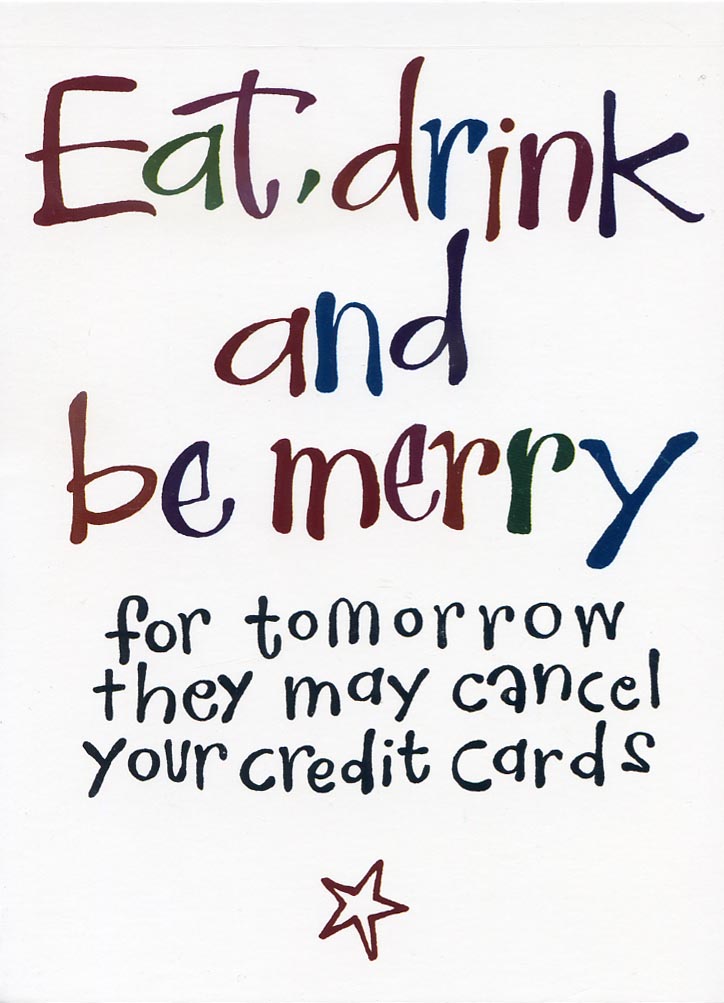 Eat, drink
and
be merry
for tomorrow
they may cancel
your credit cards